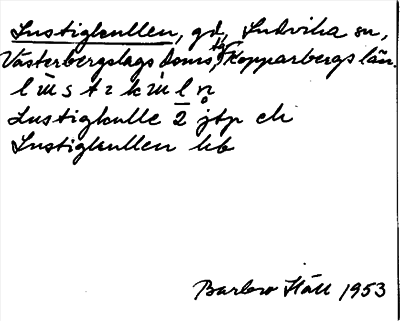 Lustigkullen, gd, Ludvika sn,
Västerbergslags doms., Kopparbergs län.
Lustigkulle 2 jtp ek
Lustigkullen hb
Barbro Häll 1953